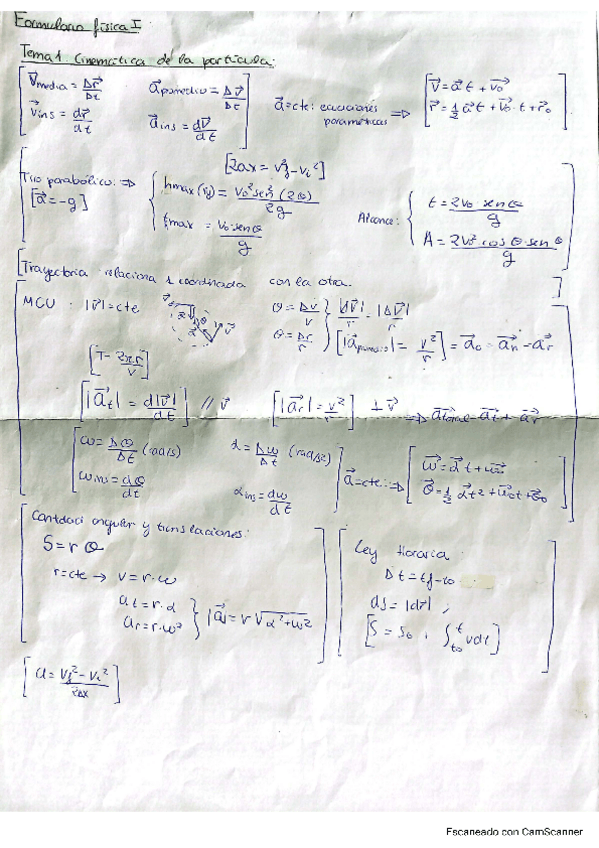 Formulario física I
Tema 1 Cinemática de la partícula:
V⃗media = Δr⃗/Δt
a⃗promedio = Δv⃗/Δt
V⃗ins = dr⃗/dt
a⃗ins = dV⃗/dt
a⃗=cte: ecuaciones paramétricas ⇒
V⃗ = a⃗t + v⃗o
r⃗ = 1/2 a⃗t + V⃗o·t + r⃗o
[2ax = Vf² - Vi²]
Tiro parabólico: ⇒
[a⃗ = -g]
hmax (Vy) = Vo² sen² (2θ) / 2g
tmax = Vo senθ / g
Alcance:
t = 2Vo senθ / g
A = 2Vo² cos θ sen θ / g
Trayectoria relaciona 1 coordinada con la otra.
MCU : |V⃗| = cte
θ = Δv/v
θ = Δr/r
|a⃗promedio| = v²/r
[T = 2π.r/V]
[|a⃗t| = d|V⃗|/dt] // V⃗
[|a⃗r| = v²/r] ⊥ V⃗
⇒ a⃗total = a⃗t + a⃗r
ω = Δθ/Δt (rad/s)
α = Δω/Δt (rad/s²)
ωins = dθ/dt
αins = dω/dt
a⃗=cte: ⇒
ω⃗ = α⃗t + ω⃗o
θ⃗ = 1/2 α⃗t² + ω⃗ot + θ⃗o
angular y translaciones:
S = r θ
r=cte → v = r·ω
at = r·α
ar = r·ω²
|a⃗| = r √α²+ω²
Ley Horaria:
Δt = tf - to
ds = |dr⃗| ;
[S = So + ∫to t vdt]
[a = Vf² - Vi² / 2Δx]
Escaneado con CamScanner